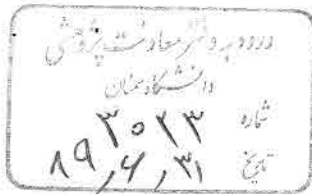 ورود به دفتر معاونت پژوهشی
دانشگاه سمنان
شماره ۸۹۳۰۲۳
تاریخ ۸۹,۶,۳۱